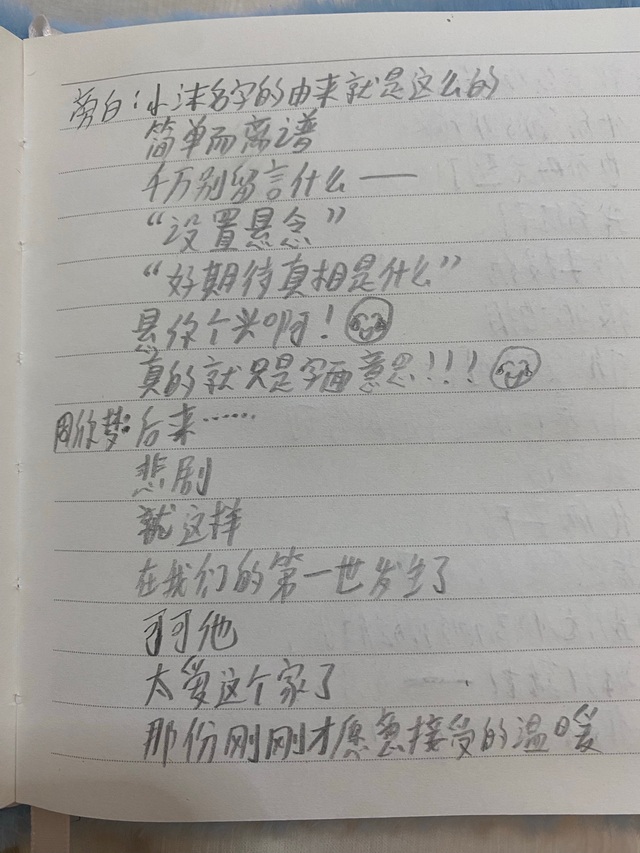 旁白：小沫名字的由来就是这么的
简单而离谱
千万别留言什么——
“设置悬念”
“好期待真相是什么”
悬你个头啊！
真的就只是字面意思！！！
周欣梦：后来……
悲剧
就这样
在我们的第一世发生了
可可他
太爱这个家了
那份刚刚才愿意接受的温暖